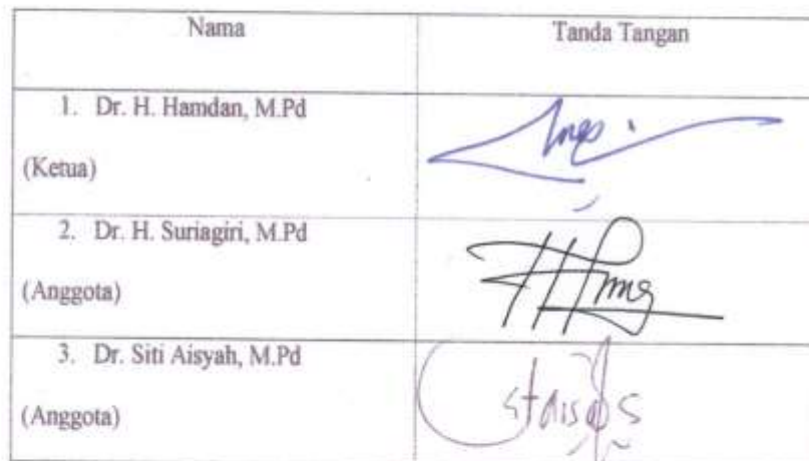 Nama
Tanda Tangan
1. Dr. H. Hamdan, M.Pd
(Ketua)
2. Dr. H. Suriagiri, M.Pd
(Anggota)
3. Dr. Siti Aisyah, M.Pd
(Anggota)